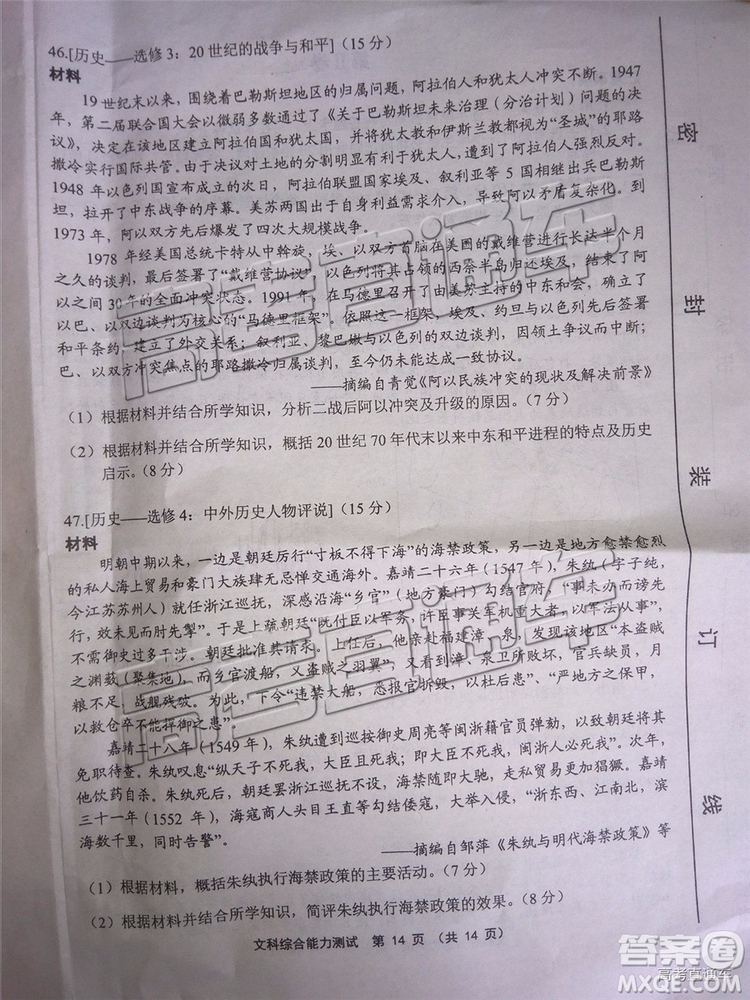 46.[历史——选修3：20世纪的战争与和平]（15分）
材料
19世纪末以来，围绕着巴勒斯坦地区的归属问题，阿拉伯人和犹太人冲突不断。1947
年，第二届联合国大会以微弱多数通过了《关于巴勒斯坦未来治理（分治计划）问题的决
议》，决定在该地区建立阿拉伯国和犹太国，并将犹太教和伊斯兰教都视为“圣城”的耶路
撒冷实行国际共管。由于决议对土地的分割明显有利于犹太人，遭到了阿拉伯人强烈反对。
1948年以色列国宣布成立的次日，阿拉伯联盟国家埃及、叙利亚等5国相继出兵巴勒斯
坦，拉开了中东战争的序幕。美苏两国出于自身利益需求介入，导致阿以矛盾复杂化。到
1973年，阿以双方先后爆发了四次大规模战争。
1978年经美国总统卡特从中斡旋，埃、以双方首脑在美国的戴维营进行长达半个月
之久的谈判，最后签署了“戴维营协议”，以色列将其占领的西奈半岛归还埃及，结束了阿
以之间30年的全面冲突状态。1991年，在马德里召开了由美苏主持的中东和会，形成了
以巴、以双边谈判为核心的“马德里框架”，依照这一框架，埃及、约旦与以色列先后签署
和平条约，建立了外交关系；叙利亚、黎巴嫩与以色列的双边谈判，因领土争议而中断；
巴、以双方冲突焦点的耶路撒冷归属谈判，至今仍未能达成一致协议。
——摘编自青觉《阿以民族冲突的现状及解决前景》
（1）根据材料并结合所学知识，分析二战后阿以冲突及升级的原因。（7分）
（2）根据材料并结合所学知识，概括20世纪70年代末以来中东和平进程的特点及历史
启示。（8分）
47.[历史——选修4：中外历史人物评说]（15分）
材料
明朝中期以来，一边是朝廷厉行“寸板不得下海”的海禁政策，另一边是地方愈禁愈烈
的私人海上贸易和豪门大族肆无忌惮交通海外。嘉靖二十六年（1547年），朱纨（字子纯，
今江苏苏州人）就任浙江巡抚，深感沿海“乡官”（地方豪门）勾结官府，“事未办而谤先
行，效未见而肘先掣”。于是上疏朝廷“既付臣以军务，许臣事关军机重大者，以军法从事”，
不需御史过多干涉。朝廷批准其请求。上任后，他亲赴福建漳、泉，发现该地区“本盗贼
之渊薮（聚集地），而乡官渡船，又盗贼之羽翼”，又看到漳、泉卫所诸所，官兵缺员，月
粮不足，战舰残破。为此，下令“违禁大船，悉报官拆毁，以杜后患”、“严地方之保甲，
以救仓卒不能捍御之患”。
嘉靖二十八年（1549年），朱纨遭到巡按御史周亮等闽浙籍官员弹劾，以致被朝廷
免职待查。朱纨叹息“纵天子不死我，大臣且死我；即大臣不死我，闽浙人必死我”。次年，
他饮药自杀。朱纨死后，朝廷罢浙江巡抚，海禁随即大弛，走私者更加猖獗。嘉靖
三十一年（1552年），海寇商人头目王直等勾结倭寇，大举入侵，“浙东西、江南北，滨
海数千里，同时告警”。
——摘编自邹萍《朱纨与明代海禁政策》等
（1）根据材料，概括朱纨执行海禁政策的主要活动。（7分）
（2）根据材料并结合所学知识，简评朱纨执行海禁政策的效果。（8分）
文科综合能力测试 第14页（共14页）
密
封
装
订
线
高考直通车
高考直通车
答案圈
MXQE.COM
高考直通车